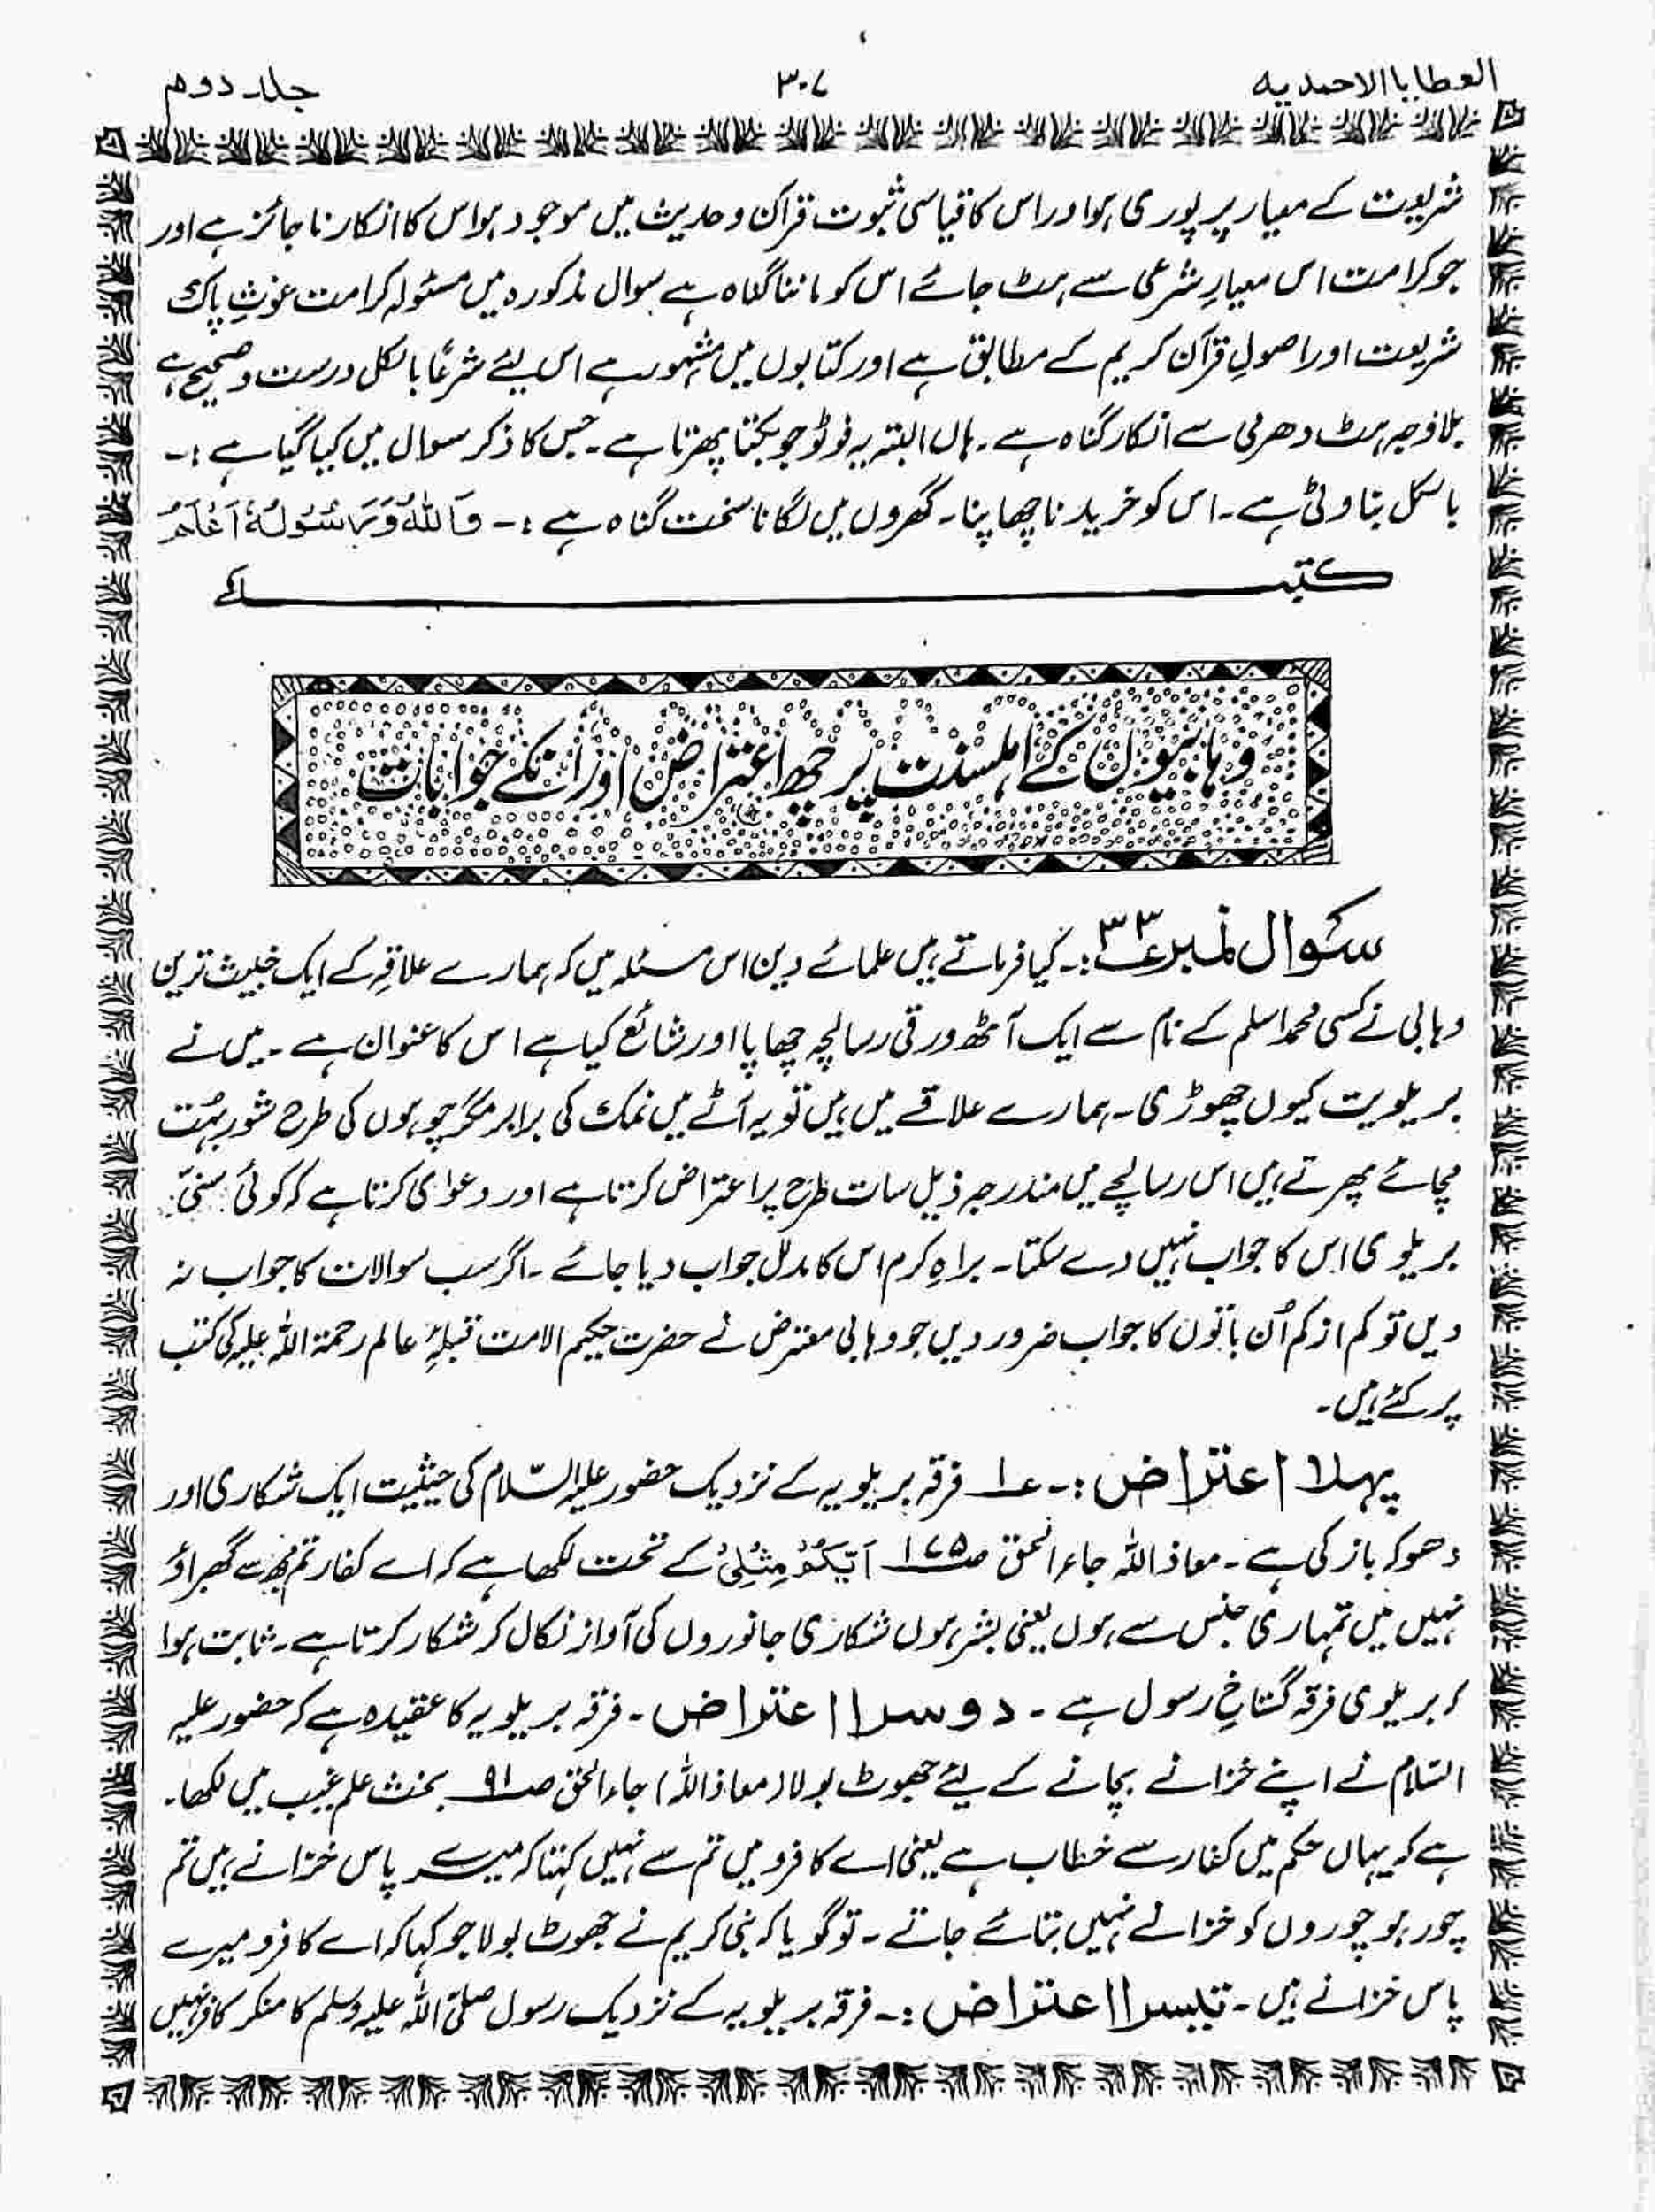 العطایا الاحمدیہ ۳۰۷ جلد دوم
شریعت کے معیار پر پوری ہو اور اس کا قیاسی ثبوت قرآن و حدیث میں موجود ہو اس کا انکار ناجائز ہے اور
جو کرامت اس معیارِ شرعی سے ہٹ جائے اس کو ماننا گناہ ہے سوال مذکورہ میں مسئولہ کرامت غوثِ پاک
شریعت اور اصولِ قرآن کریم کے مطابق ہے اور کتابوں میں مشہور ہے اس لیئے شرعًا بالکل درست و صحیح ہے
بلاوجہ ہٹ دھرمی سے انکار گناہ ہے ۔ ہاں البتہ یہ فوٹو جو بکتا پھرتا ہے ۔ جس کا ذکر سوال میں کیا گیا ہے :۔
بالکل بناوٹی ہے ۔ اس کو خریدنا چھاپنا ۔ گھروں میں لگانا سخت گناہ ہے :۔ وَاللہُ وَرَسُوْلُہٗ اَعْلَمُ
کتبہ
وہابیوں کے اہلسنت پر چھ اعتراض اور انکے جوابات
سوال نمبر ۳۳ :۔ کیا فرماتے ہیں علمائے دین اس مسئلہ میں کہ ہمارے علاقہ کے ایک خبیث ترین
وہابی نے کسی محمد اسلم کے نام سے ایک آٹھ ورقی رسالچہ چھاپا اور شائع کیا ہے اس کا عنوان ہے ۔ میں نے
بریلویت کیوں چھوڑی ۔ ہمارے علاقے میں ہیں تو یہ آٹے میں نمک کی برابر مگر چوہوں کی طرح شور بہُت
مچائے پھرتے ہیں اس رسالچے میں مندرجہ ذیل سات طرح پر اعتراض کرتا ہے اور دعوٰی کرتا ہے کہ کوئی سنیّ
بریلوی اس کا جواب نہیں دے سکتا ۔ براہِ کرم اس کا مدلل جواب دیا جائے ۔ اگر سب سوالات کا جواب نہ
دیں تو کم از کم اُن باتوں کا جواب ضرور دیں جو وہابی معترض نے حضرت حکیم الامت قبلۂ عالم رحمۃ اللہ علیہ کی کتب
پر کئے ہیں ۔
پہلا اعتراض :۔ ۱ فرقہ بریلویہ کے نزدیک حضور علیہ السّلام کی حیثیت ایک شکاری اور
دھوکہ باز کی ہے ۔ معاذ اللہ جاء الحق صـ۱۷۵ اَیُّکُمْ مِثْلِیْ کے تحت لکھا ہے کہ اے کفار تم مجھ سے گھبراؤ
نہیں میں تمہاری جنس سے ہوں یعنی بشر ہوں شکاری جانوروں کی آواز نکال کر شکار کرتا ہے ۔ ثابت ہوا
کہ بریلوی فرقہ گستاخِ رسول ہے ۔ دوسرا اعتراض ۔ فرقہ بریلویہ کا عقیدہ ہے کہ حضور علیہ
السّلام نے اپنے خزانے بچانے کے لیئے جھوٹ بولا (معاذ اللہ) جاء الحق صـ۹۱ بحث علم غیب میں لکھا ۔
ہے کہ یہاں حکم میں کفار سے خطاب ہے یعنی اے کافرو میں تم سے نہیں کہتا کہ میرے پاس خزانے ہیں تم
چور ہو چوروں کو خزانے نہیں بتائے جاتے ۔ تو گویا کہ نبی کریم نے جھوٹ بولا جو کہا کہ اے کافرو میرے
پاس خزانے ہیں ۔ تیسرا اعتراض :۔ فرقہ بریلویہ کے نزدیک رسول صلیّ اللہ علیہ وسلم کا منکر کافر نہیں